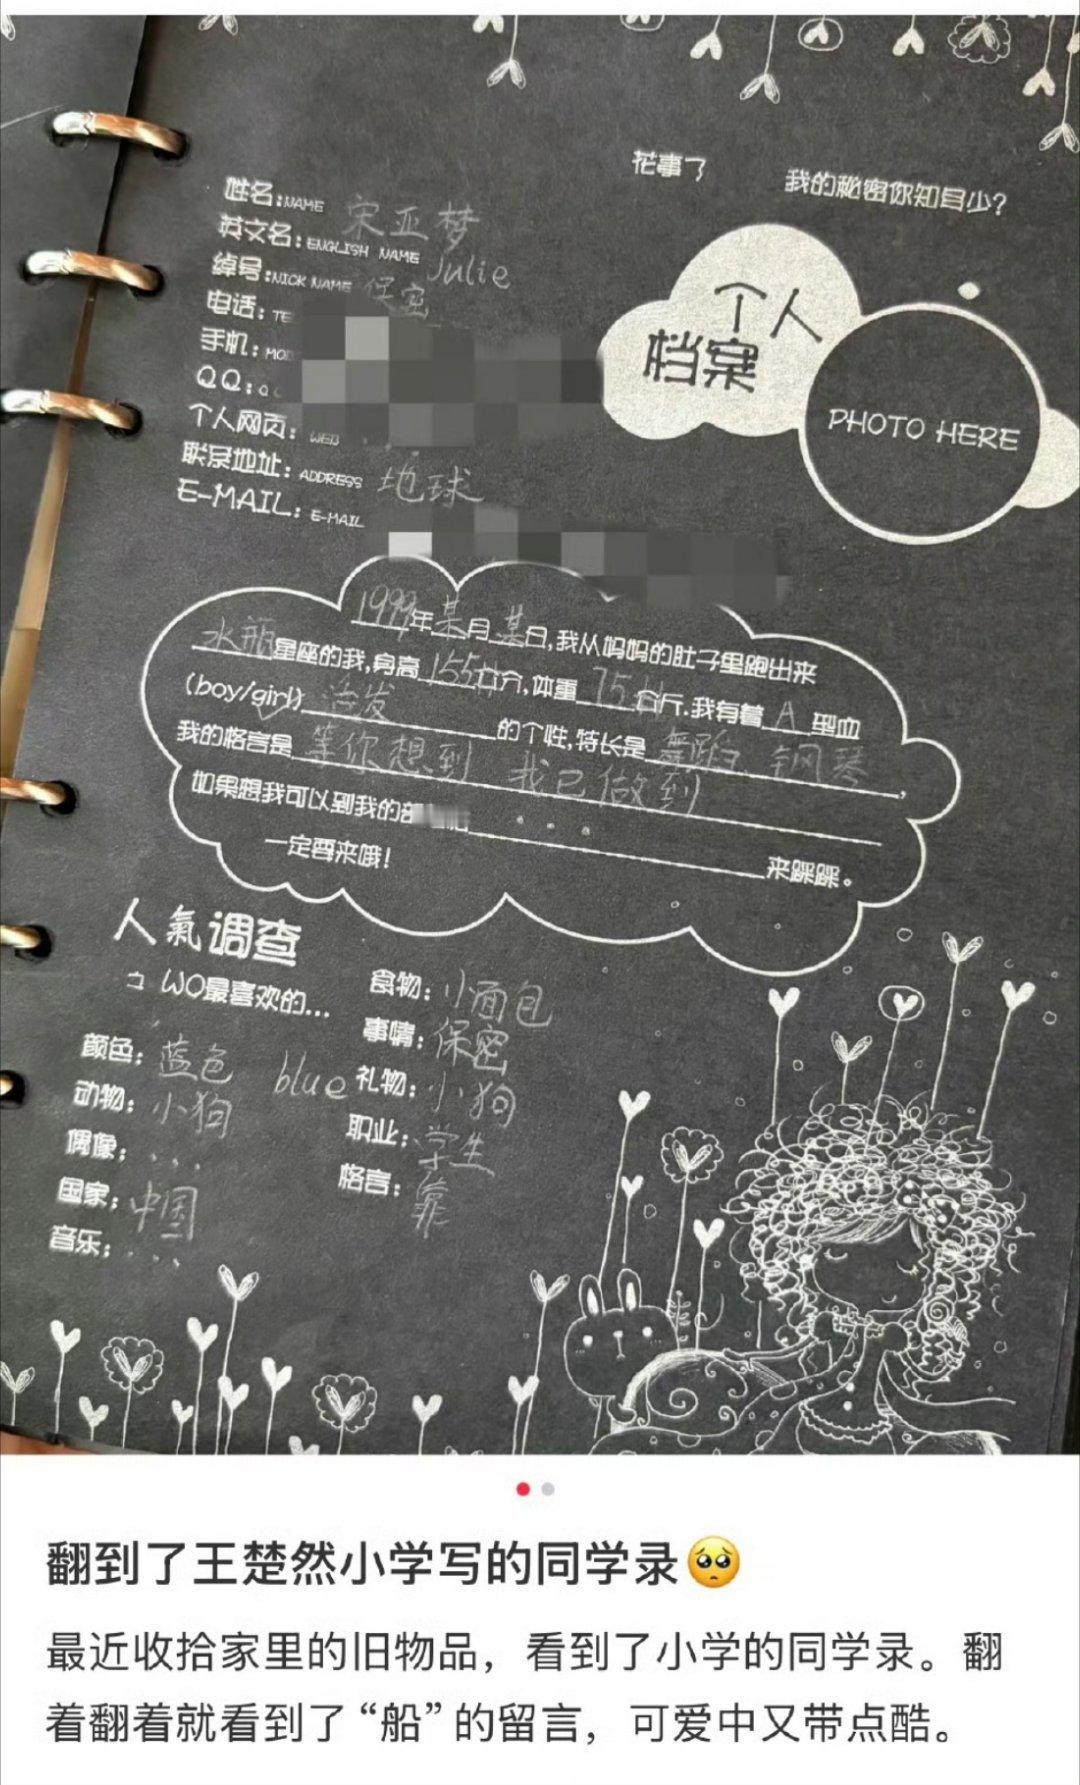 花事了 我的秘密你知多少?
姓名:NAME 宋亚梦
英文名:ENGLISH NAME Julie
绰号:NICK NAME 保密
电话:TE
手机:MO
QQ:
个人网页:WEB
联系地址:ADDRESS 地球
E-MAIL:E-MAIL
个人
档案
PHOTO HERE
1999年某月某日,我从妈妈的肚子里跑出来
水瓶星座的我,身高155公分,体重75公斤.我有着A型血
(boy/girl)活发的个性,特长是舞蹈、钢琴,
我的格言是等你想到 我已做到
如果想我可以到我的 ... 来踩踩。
一定要来哦!
人氣调查
WO最喜欢的...
颜色:蓝色 blue
动物:小狗
偶像:...
国家:中国
音乐:...
食物:小面包
事情:保密
礼物:小狗
职业:学生
格言:靠
翻到了王楚然小学写的同学录🥺
最近收拾家里的旧物品，看到了小学的同学录。翻
着翻着就看到了“船”的留言，可爱中又带点酷。